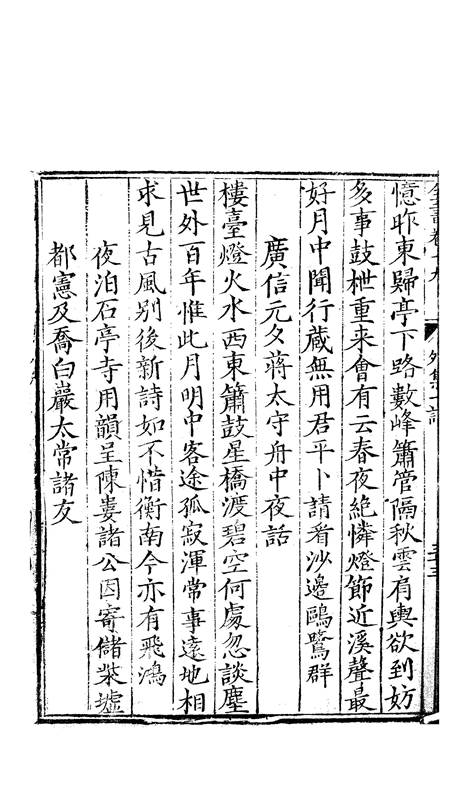 憶昨東歸亭下路數峰簫管隔秋雲肩輿欲到妨
多事鼓枻重来會有云春夜絶憐燈節近溪聲最
好月中聞行蔵無用君平卜請看沙邊鷗鷺群
廣信元夕蔣太守舟中夜話
樓臺燈火水西東簫鼓星橋渡碧空何處忽談塵
世外百年惟此月明中客途孤寂渾常事遠地相
求見古風别後新詩如不惜衡南今亦有飛鴻
夜泊石亭寺用韻呈陳婁諸公因寄儲柴墟
都憲及喬白巖太常諸友